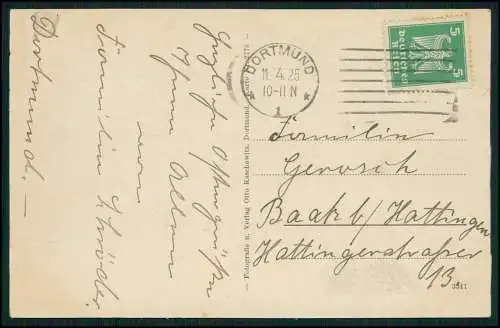 Herzliche Ostergrüße
Ihnen Allen
von
Familie Schröder
Dortmund.
Fotografie u. Verlag Otto Kaschewitz, Dortmund,
DORTMUND
11.4.25
10-11 N
1
5 5
Deutsches
Reich
Familie
Gerosch
Baak b/ Hattingen
Hattingerstraße
13.